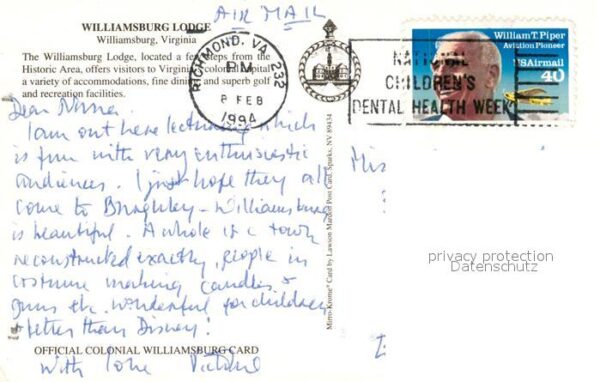 AIR MAIL
WILLIAMSBURG LODGE
Williamsburg, Virginia
The Williamsburg Lodge, located a few steps from the
Historic Area, offers visitors to Virginia's colonial capital
a variety of accommodations, fine dining and superb golf
and recreation facilities.
RICHMOND, VA 232
PM
8 FEB
1994
NATIONAL
CHILDREN'S
DENTAL HEALTH WEEK
William T. Piper
Aviation Pioneer
USAirmail
40
Dear
I am out here lecturing which
is fun with very enthusiastic
audiences. I just hope they all
come to Burghley - Williamsburg
is beautiful. A whole of a town
reconstructed exactly, people in
costume making candles &
guns etc. wonderful for children
& better than Disney!
With love
OFFICIAL COLONIAL WILLIAMSBURG CARD
Mirro-Krome® Card by Lawson Mardon Post Card, Sparks, NV 89434
Mis
privacy protection
Datenschutz